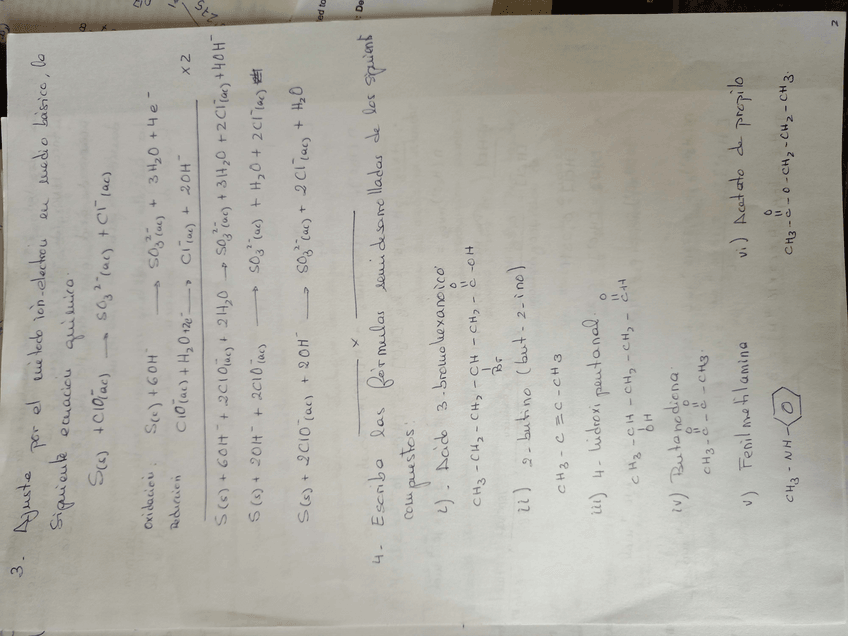 3. Ajuste por el método ion-electrón en medio básico, la
siguiente ecuación química:
S(s) + ClO⁻(ac) → SO₃²⁻(ac) + Cl⁻(ac)
Oxidación: S(s) + 6OH⁻ → SO₃²⁻(ac) + 3H₂O + 4e⁻
Reducción ClO⁻(ac) + H₂O + 2e⁻ → Cl⁻(ac) + 2OH⁻ x2
S(s) + 6OH⁻ + 2ClO⁻(ac) + 2H₂O → SO₃²⁻(ac) + 3H₂O + 2Cl⁻(ac) + 4OH⁻
S(s) + 2OH⁻ + 2ClO⁻(ac) → SO₃²⁻(ac) + H₂O + 2Cl⁻(ac)
S(s) + 2ClO⁻(ac) + 2OH⁻ → SO₃²⁻(ac) + 2Cl⁻(ac) + H₂O
x
4- Escriba las fórmulas semidesarrolladas de los siguient
compuestos:
i)- Acido 3-bromohexanoico
O
CH3-CH2-CH2-CH-CH2-C-OH
Br
ii) 2-butino (but-2-ino)
CH3-C≡C-CH3
iii) 4-hidroxi pentanal
O
CH3-CH-CH2-CH2-CH
OH
iv) Butanodiona
O O
CH3-C-C-CH3.
v) Fenilmetilamina
CH3-NH-
vi) Acetato de propilo
O
CH3-C-O-CH2-CH2-CH3.
2